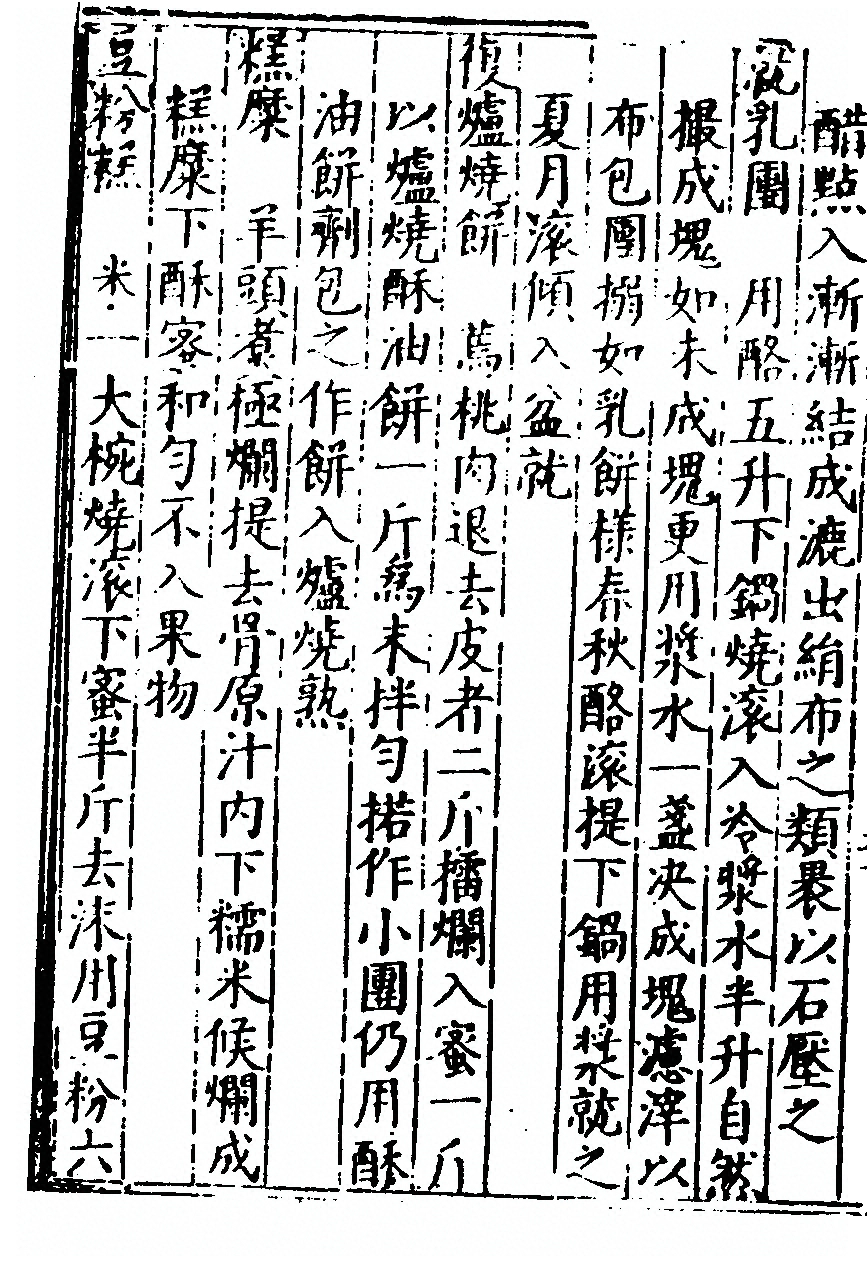 醋點入漸漸結成漉出絹布之類褁以石壓之
乳團　用酪五升下鍋燒滾入冷漿水半升自然
撮成塊如未成塊更用漿水一盞决成塊濾滓以
布包團搦如乳餅樣春秋酪滾提下鍋用漿就之
夏月滾傾入盆就
復爐燒餅　蔫桃肉退去皮者二斤擂爛入蜜一斤
以爐燒酥油餅一斤爲末拌勻搭作小團仍用酥
油餅劑包之作餅入爐燒熟
糕糜　羊頭煑極爛提去骨原汁內下糯米候爛成
糕糜下酥蜜和勻不入果物
豆粉糕　米一大椀燒滾下蜜半斤去沫用豆粉六